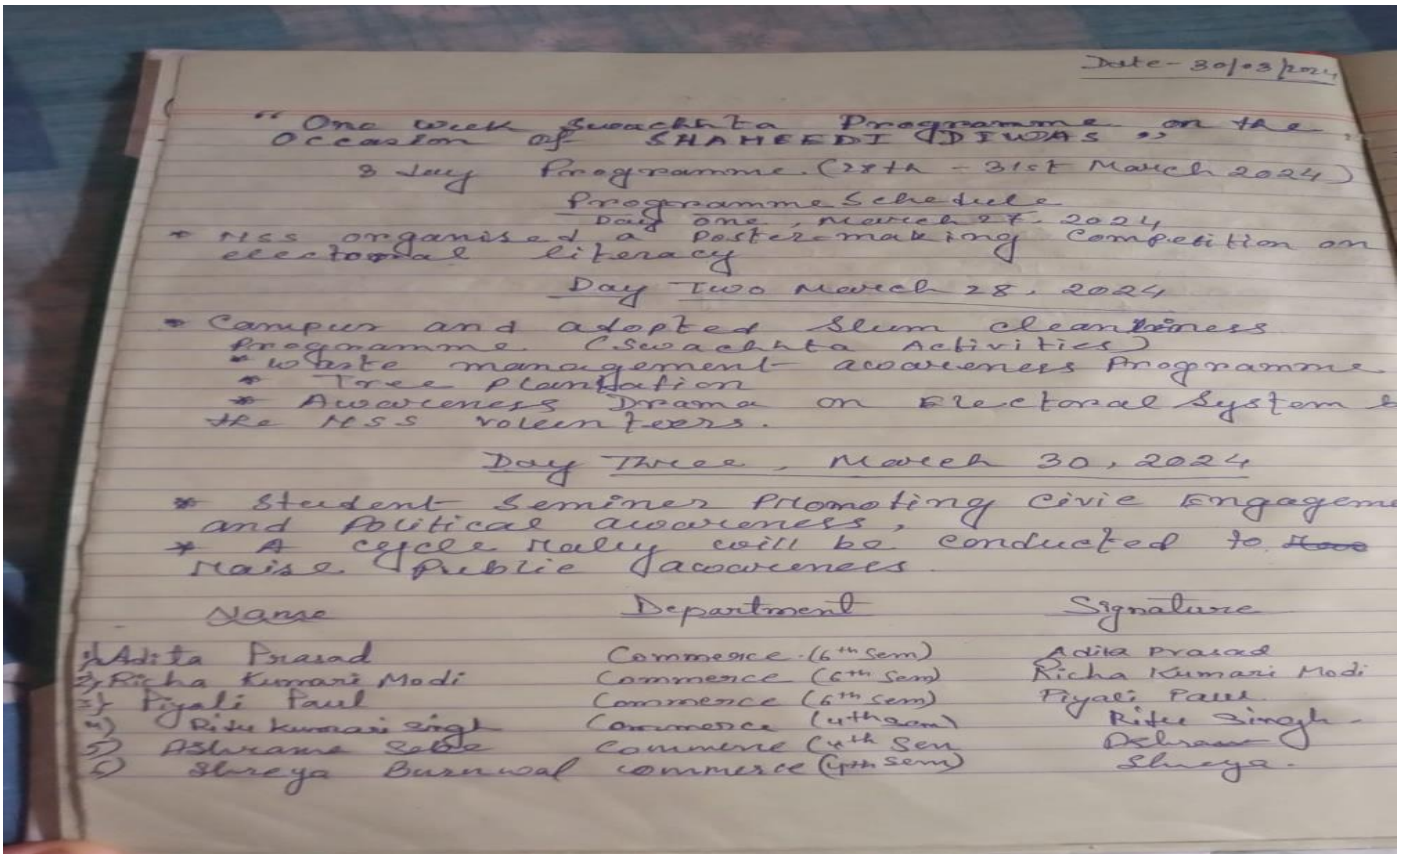 Date - 30/03/2024
" One week Swachhta Programme on the
Occasion of SHAHEEDI DIWAS "
3 day Programme. (28th - 31st March 2024)
Programme Schedule
Day one, March 27, 2024
* NSS organised a Poster-making Competition on
electoral literacy
Day Two March 28, 2024
* Campus and adopted Slum cleanliness
Programme (Swachhta Activities)
* Waste management awareness Programme
* Tree Plantation
* Awareness Drama on Electoral System
the NSS volunteers.
Day Three, March 30, 2024
* Student Seminer Promoting Civic Engageme
and Political awareness,
* A cycle rally will be conducted to
raise Public awareness.
Name Department Signature
1) Adita Prasad Commerce (6th Sem) Adita Prasad
2) Richa Kumari Modi Commerce (6th Sem) Richa Kumari Modi
3) Piyali Paul Commerce (6th Sem) Piyali Paul
4) Ritu Kumari Singh Commerce (4th sem) Ritu Singh
5) Commerce (4th Sem
6) Shreya Burnwal commerce (4th sem) Shreya.